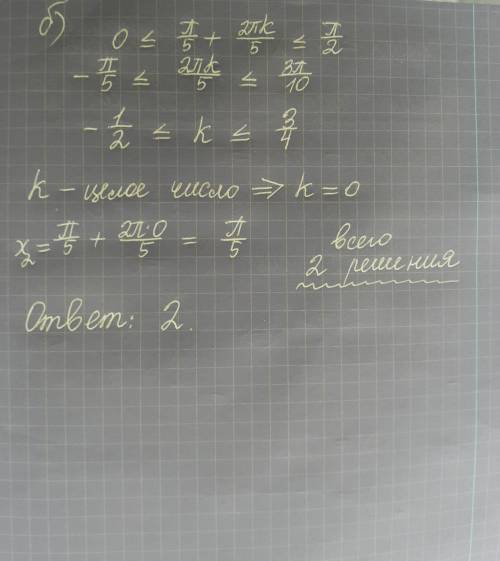 б) 0 ≤ π/5 + 2πk/5 ≤ π/2
- π/5 ≤ 2πk/5 ≤ 3π/10
- 1/2 ≤ k ≤ 3/4
k – целое число => k = 0
x₂ = π/5 + 2π·0/5 = π/5
всего
2 решения
Ответ: 2.